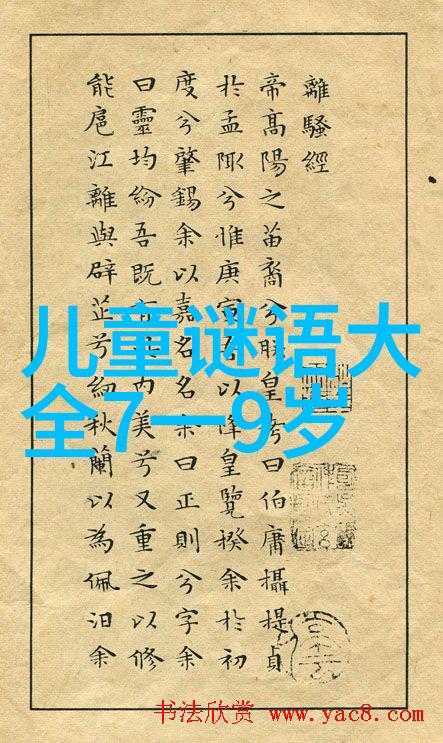 離騷經
帝高陽之苗裔兮朕皇考曰伯庸攝提貞
於孟陬兮惟庚寅吾以降皇覽揆余於初
度兮肇錫余以嘉名名余曰正則兮字余
曰靈均紛吾既有此內美兮又重之以修
能扈江離與辟芷兮紉秋蘭以為佩汩余
儿童谜语大
全7一9岁
书法欣赏 www.yac8.com